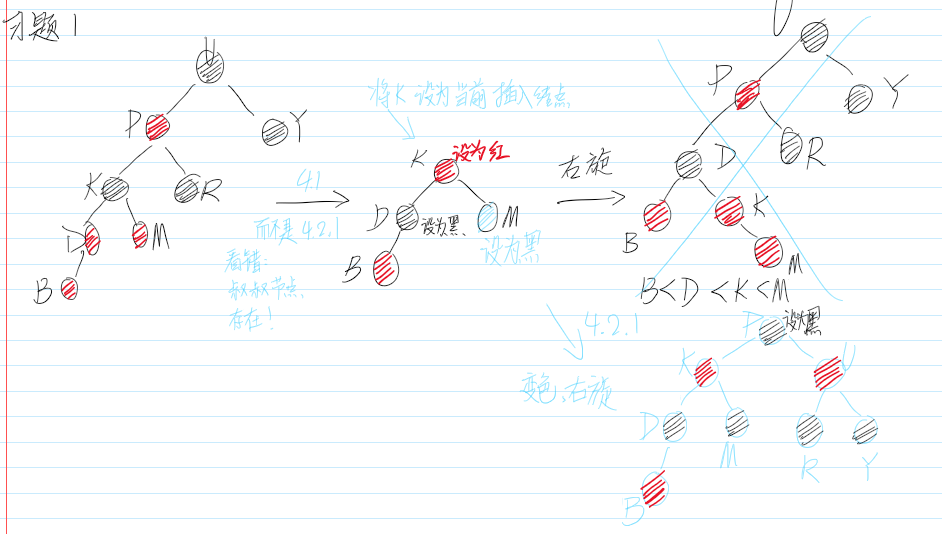 习题1
U
P
Y
K
R
D
M
B
4.1
而不是4.2.1
看错:
叔叔节点
存在!
将K设为当前插入结点
K 设为红
D 设为黑
M
设为黑
B
右旋
U
P
Y
R
D
K
B
M
B<D<K<M
4.2.1
变色、右旋
P 设为黑
K
U
D
M
R
Y
B